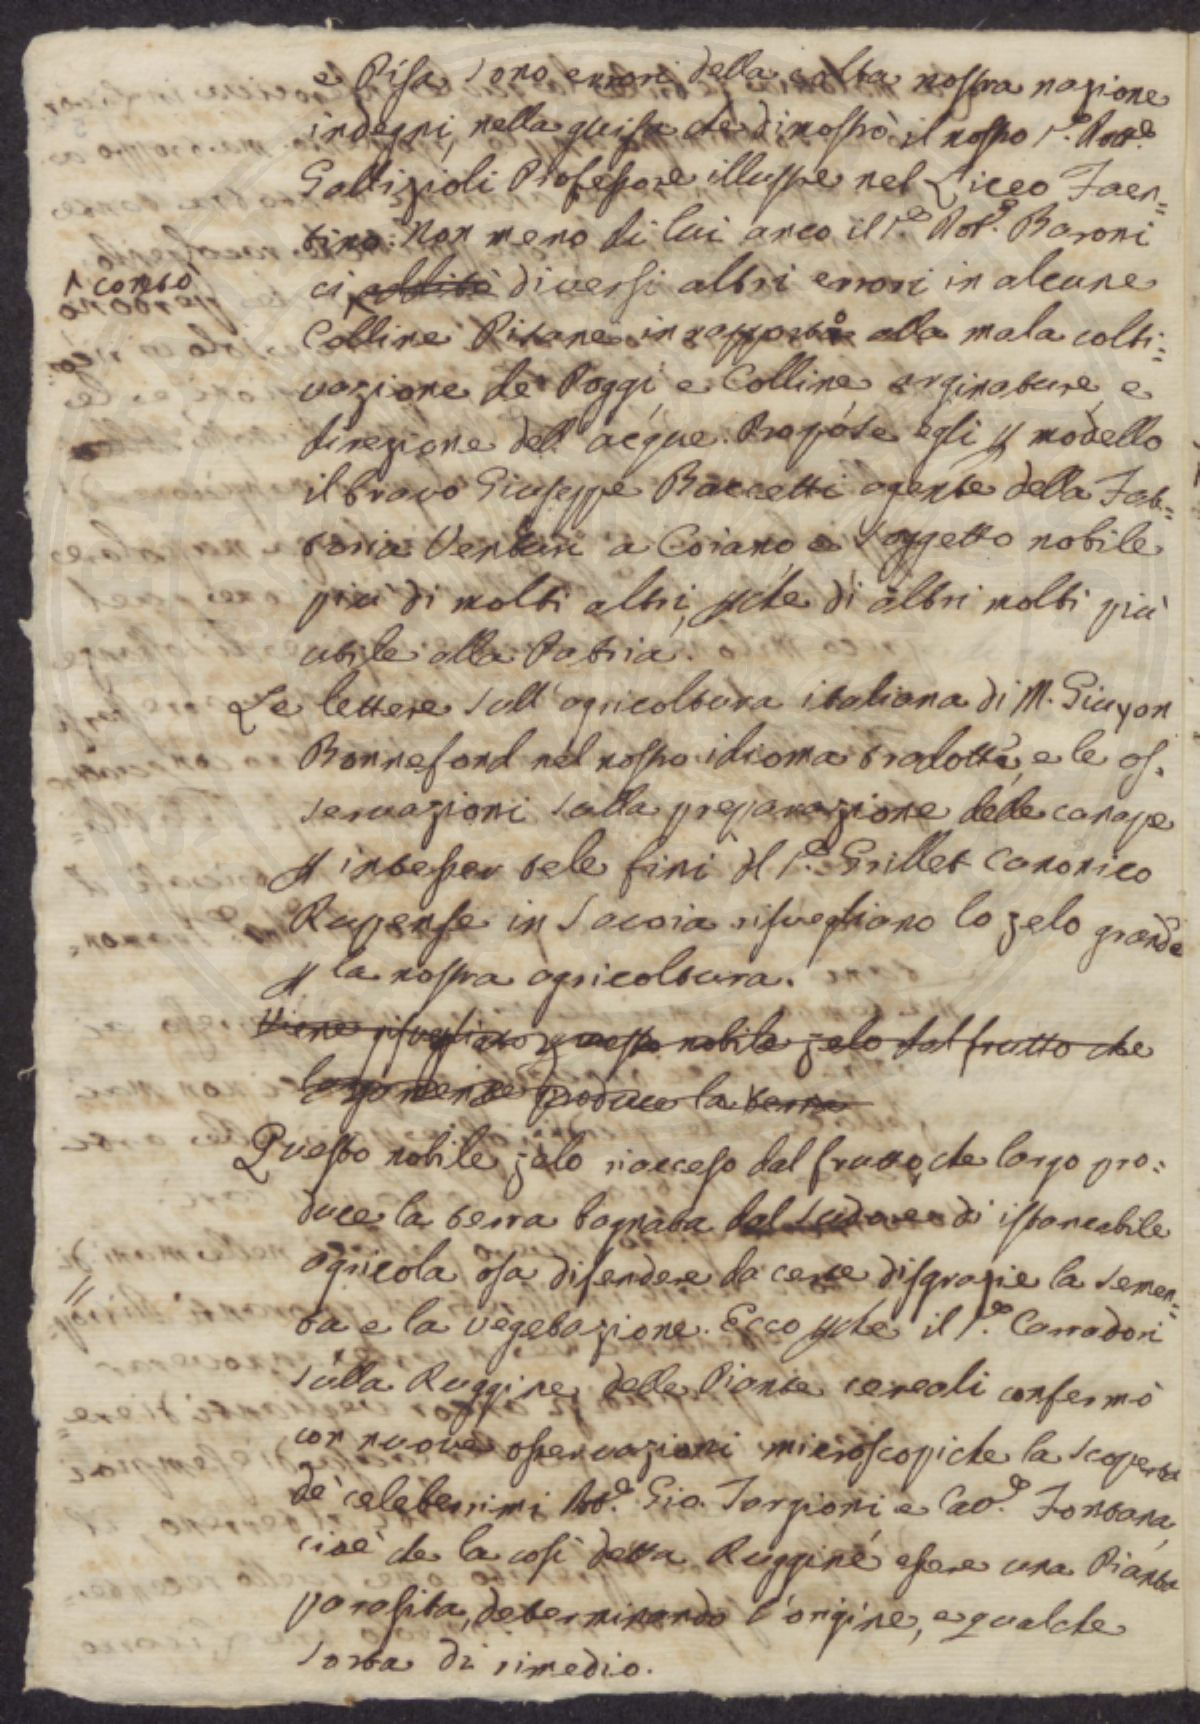 e Pisa sono errori della colta nostra nazione
indegni, nella guisa che dimostrò il nostro S.e Dott.e
Gallizioli Professore illustre nel Liceo Faen=
tino. Non meno di lui anco il S.e Dot.e Baroni
^ contò
ci additò diversi altri errori in alcune
Colline Pisane in rapporto alla mala colti=
vazione de Poggi, e Colline, arginature, e
direzione dell'acque. Propose egli p modello
il bravo Giuseppe Baccetti agente della Fat=
toria Venturi a Coiano, e soggetto nobile
più di molti altri, pche di altri molti più
utile alla Patria.
Le lettere sull'agricoltura italiana di M. Giuyon
Bonnefond nel nostro idioma tradotte, e le os=
servazioni sulla preparazione delle canape
p intesser tele fini del S.e Grillet Canonico
Rupense in Savoia risvegliano lo zelo grande
p la nostra agricoltura.
Viene risvegliato questo nobile zelo dal frutto che
largamente produce la terra
Questo nobile zelo riacceso dal frutto, che largo pro=
duce la terra bagnata dal sudore di istancabile
agricola osa difendere da certe disgrazie la semen=
ta e la vegetazione. Ecco pche il S.e Carradori
sulla Ruggine delle Piante cereali confermò
con nuove osservazioni microscopiche la scoperta
de' celeberrimi Dot.e Gio. Targioni e Cav.e Fontana,
cioè che la così detta Ruggine essere una Pianta
parasita, determinando l'origine, e qualche
sorta di rimedio.